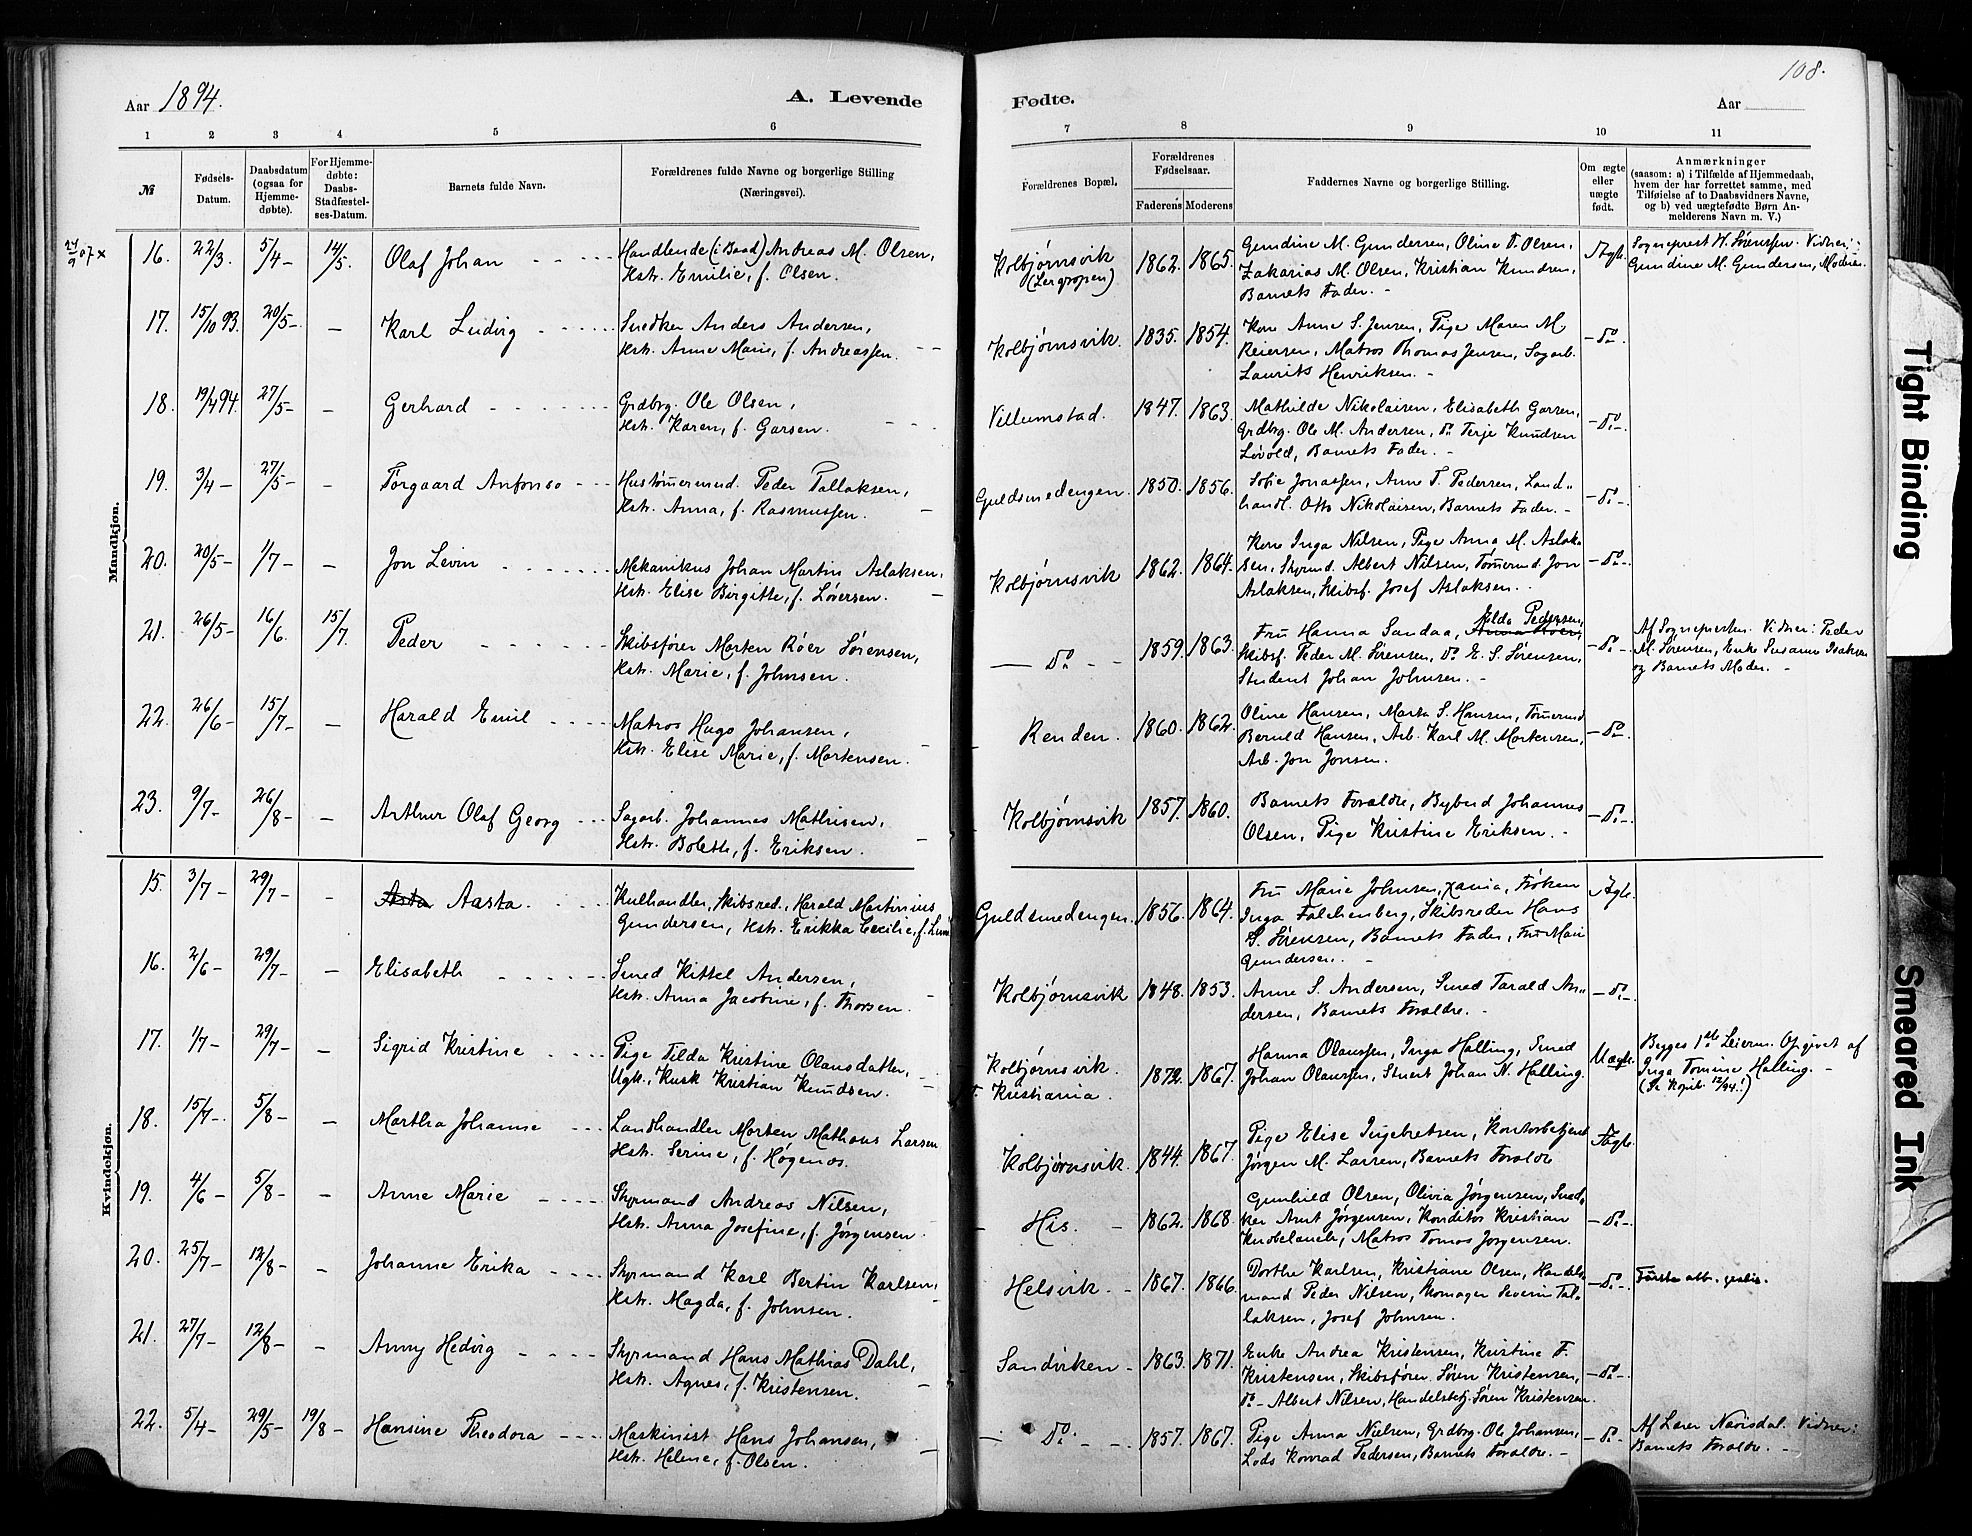 108.
Aar 1894.
A. Levende
Fødte.
Aar
1 2 3 4 5 6 7 8 9 10 11
№
Fødsels-
Datum.
Daabsdatum
(ogsaa for
Hjemme-
døbte).
For Hjemme-
døbte:
Daabs-
Stadfæstel-
ses-Datum.
Barnets fulde Navn.
Forældrenes fulde Navne og borgerlige Stilling
(Næringsvei).
Forældrenes Bopæl.
Forældrenes
Fødselsaar.
Faderens Moderens
Faddernes Navne og borgerlige Stilling.
Om ægte
eller
uægte
født.
Anmærkninger
(saasom: a) i Tilfælde af Hjemmedaab,
hvem der har forrettet samme, med
Tilføielse af to Daabsvidners Navne,
og b) ved uægtefødte Børn An-
melderens Navn m. V.)
Mandkjøn.
16. 22/3. 5/4 14/5. Olaf Johan
Handlende (i Baad) Andreas M. Olsen,
Hstr. Emilie, f. Olsen.
Kolbjørnsvik
(Lergropen)
1862. 1865.
Gundine M. Gundersen, Oline T. Olsen,
Zakarias M. Olsen, Kristian Knudsen,
Barnets Fader.
Ægte.
Sogneprest H. Sørensen. Vidner:
Gundine M. Gundersen, Moderen.
17. 15/10 93. 20/5 Karl Ludvig
Snedker Anders Andersen,
Hstr. Anne Marie, f. Andreassen.
Kolbjørnsvik. 1835. 1854.
Kone Anne S. Jensen, Pige Maren M.
Reiersen, Matros Thomas Jensen, Sagarb.
Laurits Henriksen.
Do
18. 19/4 94. 27/5 Gerhard
Grdbrg. Ole Olsen,
Hstr. Karen, f. Garsen.
Villumstad. 1847. 1863.
Mathilde Nikolaisen, Elisabeth Garsen,
Grdbrg. Ole M. Andersen, Do Terje Knudsen
Løvold, Barnets Fader.
Do
19. 3/4 27/5 Torgaard Anfonso
Hustømermd. Peder Tallaksen,
Hstr. Anna, f. Rasmussen.
Guldsmedengen. 1850. 1856.
Sofie Jonassen, Anne T. Pedersen, Land-
handl. Otto Nikolaisen, Barnets Fader.
Do
20. 20/5 1/7 Jon Levin
Mekanikus Johan Martin Aslaksen,
Hstr. Elise Birgitte, f. Løversen.
Kolbjørnsvik 1862. 1864.
Kone Inga Nilsen, Pige Anna M. Aslak-
sen, Styrmd. Albert Nilsen, Tømermd. Jon
Aslaksen, Skibsf. Josef Aslaksen.
Do
21. 26/5 16/6. 15/7. Peder
Skibsfører Morten Röer Sörensen,
Hstr. Marie, f. Johnsen.
Do 1859. 1863.
Pedersen,
Fru Hanna Sandaa,
Skibsf. Peder M. Sørensen, Do E. S. Sørensen,
Student Johan Johnsen.
Do
Af Sognepresten. Vidner: Peder
M. Sørensen, Enke Susanne Isaksen
og Barnets Moder.
22. 26/6 15/7 Harald Emil
Matros Hugo Johansen,
Hstr. Elise Marie, f. Mortensen.
Renden. 1860. 1862.
Oline Hansen, Marta S. Hansen, Tømermd
Hansen, Arb. Karl M. Mortensen,
Arb. Jon Jonsen.
Do
23. 9/7 26/8 Arthur Olaf Georg
Sagarb. Johannes Mathisen,
Hstr. Boleth, f. Eriksen.
Kolbjørnsvik 1857. 1860.
Barnets Foraldre, Johannes
Olsen, Pige Kristine Eriksen.
Do
Kvindekjøn.
15. 3/7 29/7 Asta Aasta.
Kulhandler, Skibsred., Harald Martinius
Gundersen, Hstr. Erikka Cecilie,
Guldsmedengen. 1856. 1864.
Fru Marie Johnsen, Frøken
Inga Falchenberg, Skibsreder Hans
S. Sørensen, Barnets Fader, Fru
Gundersen.
Ægte.
16. 2/6 29/7 Elisabeth
Smed Kittel Andersen,
Hstr. Anna Jacobine, f. Thorsen.
Kolbjørnsvik 1848. 1853.
Anne S. Andersen, Smed Tarald An-
dersen, Barnets Foraldre.
Do
17. 1/7 29/7 Sigrid Kristine
Pige Tilda Kristine Olausdatter,
Ugk., Kusk Kristian Knudsen.
Kolbjørnsvik.
Kristiania.
1872. 1867.
Hanna Olaussen, Inga Halling, Smed
Johan Olaussen, Stuert Johan N. Halling.
Uægte.
Begges 1ste Leierm. Opgivet af
Inga Tomine Halling.
18. 15/7 5/8 Martha Johanne
Landhandler Morten Mathæus Larsen
Hstr. Serine, f. Høgenes.
Kolbjørnsvik. 1844. 1867.
Pige Elise Ingebretsen, Kontorbetjent
Jørgen M. Larsen, Barnets Foraldre
Ægte.
19. 4/6 5/8 Anne Marie
Styrmand Andreas Nilsen,
Hstr. Anna Josefine, f. Jørgensen.
His. 1862. 1868.
Gunhild Olsen, Olivia Jørgensen, Sned-
ker Arnt Jørgensen, Konditor Kristian
Matros Tomas Jørgensen.
Do
20. 25/7 12/8 Johanne Erika
Styrmand Karl Bertin Karlsen,
Hstr. Magda, f. Johnsen.
Helsvik. 1867. 1866.
Dorthe Karlsen, Kristiane Olsen, Handels-
mand Peder Nilsen, Skomager Severin Tal-
laksen, Josef Johnsen.
Do
21. 27/7 12/8 Anny Hedvig
Styrmand Hans Mathias Dahl,
Hstr. Agnes, f. Kristensen.
Sandviken 1863. 1871.
Enke Andrea Kristensen, Kristine F.
Kristensen, Skibsfører Søren Kristensen,
Do Albert Nilsen, Handelsbetj. Søren Kristensen
Do
22. 5/4 29/5 19/8 Hansine Theodora
Maskinist Hans Johansen,
Hstr. Helene, f. Olsen.
Do. 1857. 1867.
Pige Anna Nielsen, Grdbrg. Ole Johansen,
Lods Konrad Pedersen, Barnets Foraldre.
Do
Af Lærer Vidner:
Barnets Foraldre.
Tight Binding
Smeared Ink